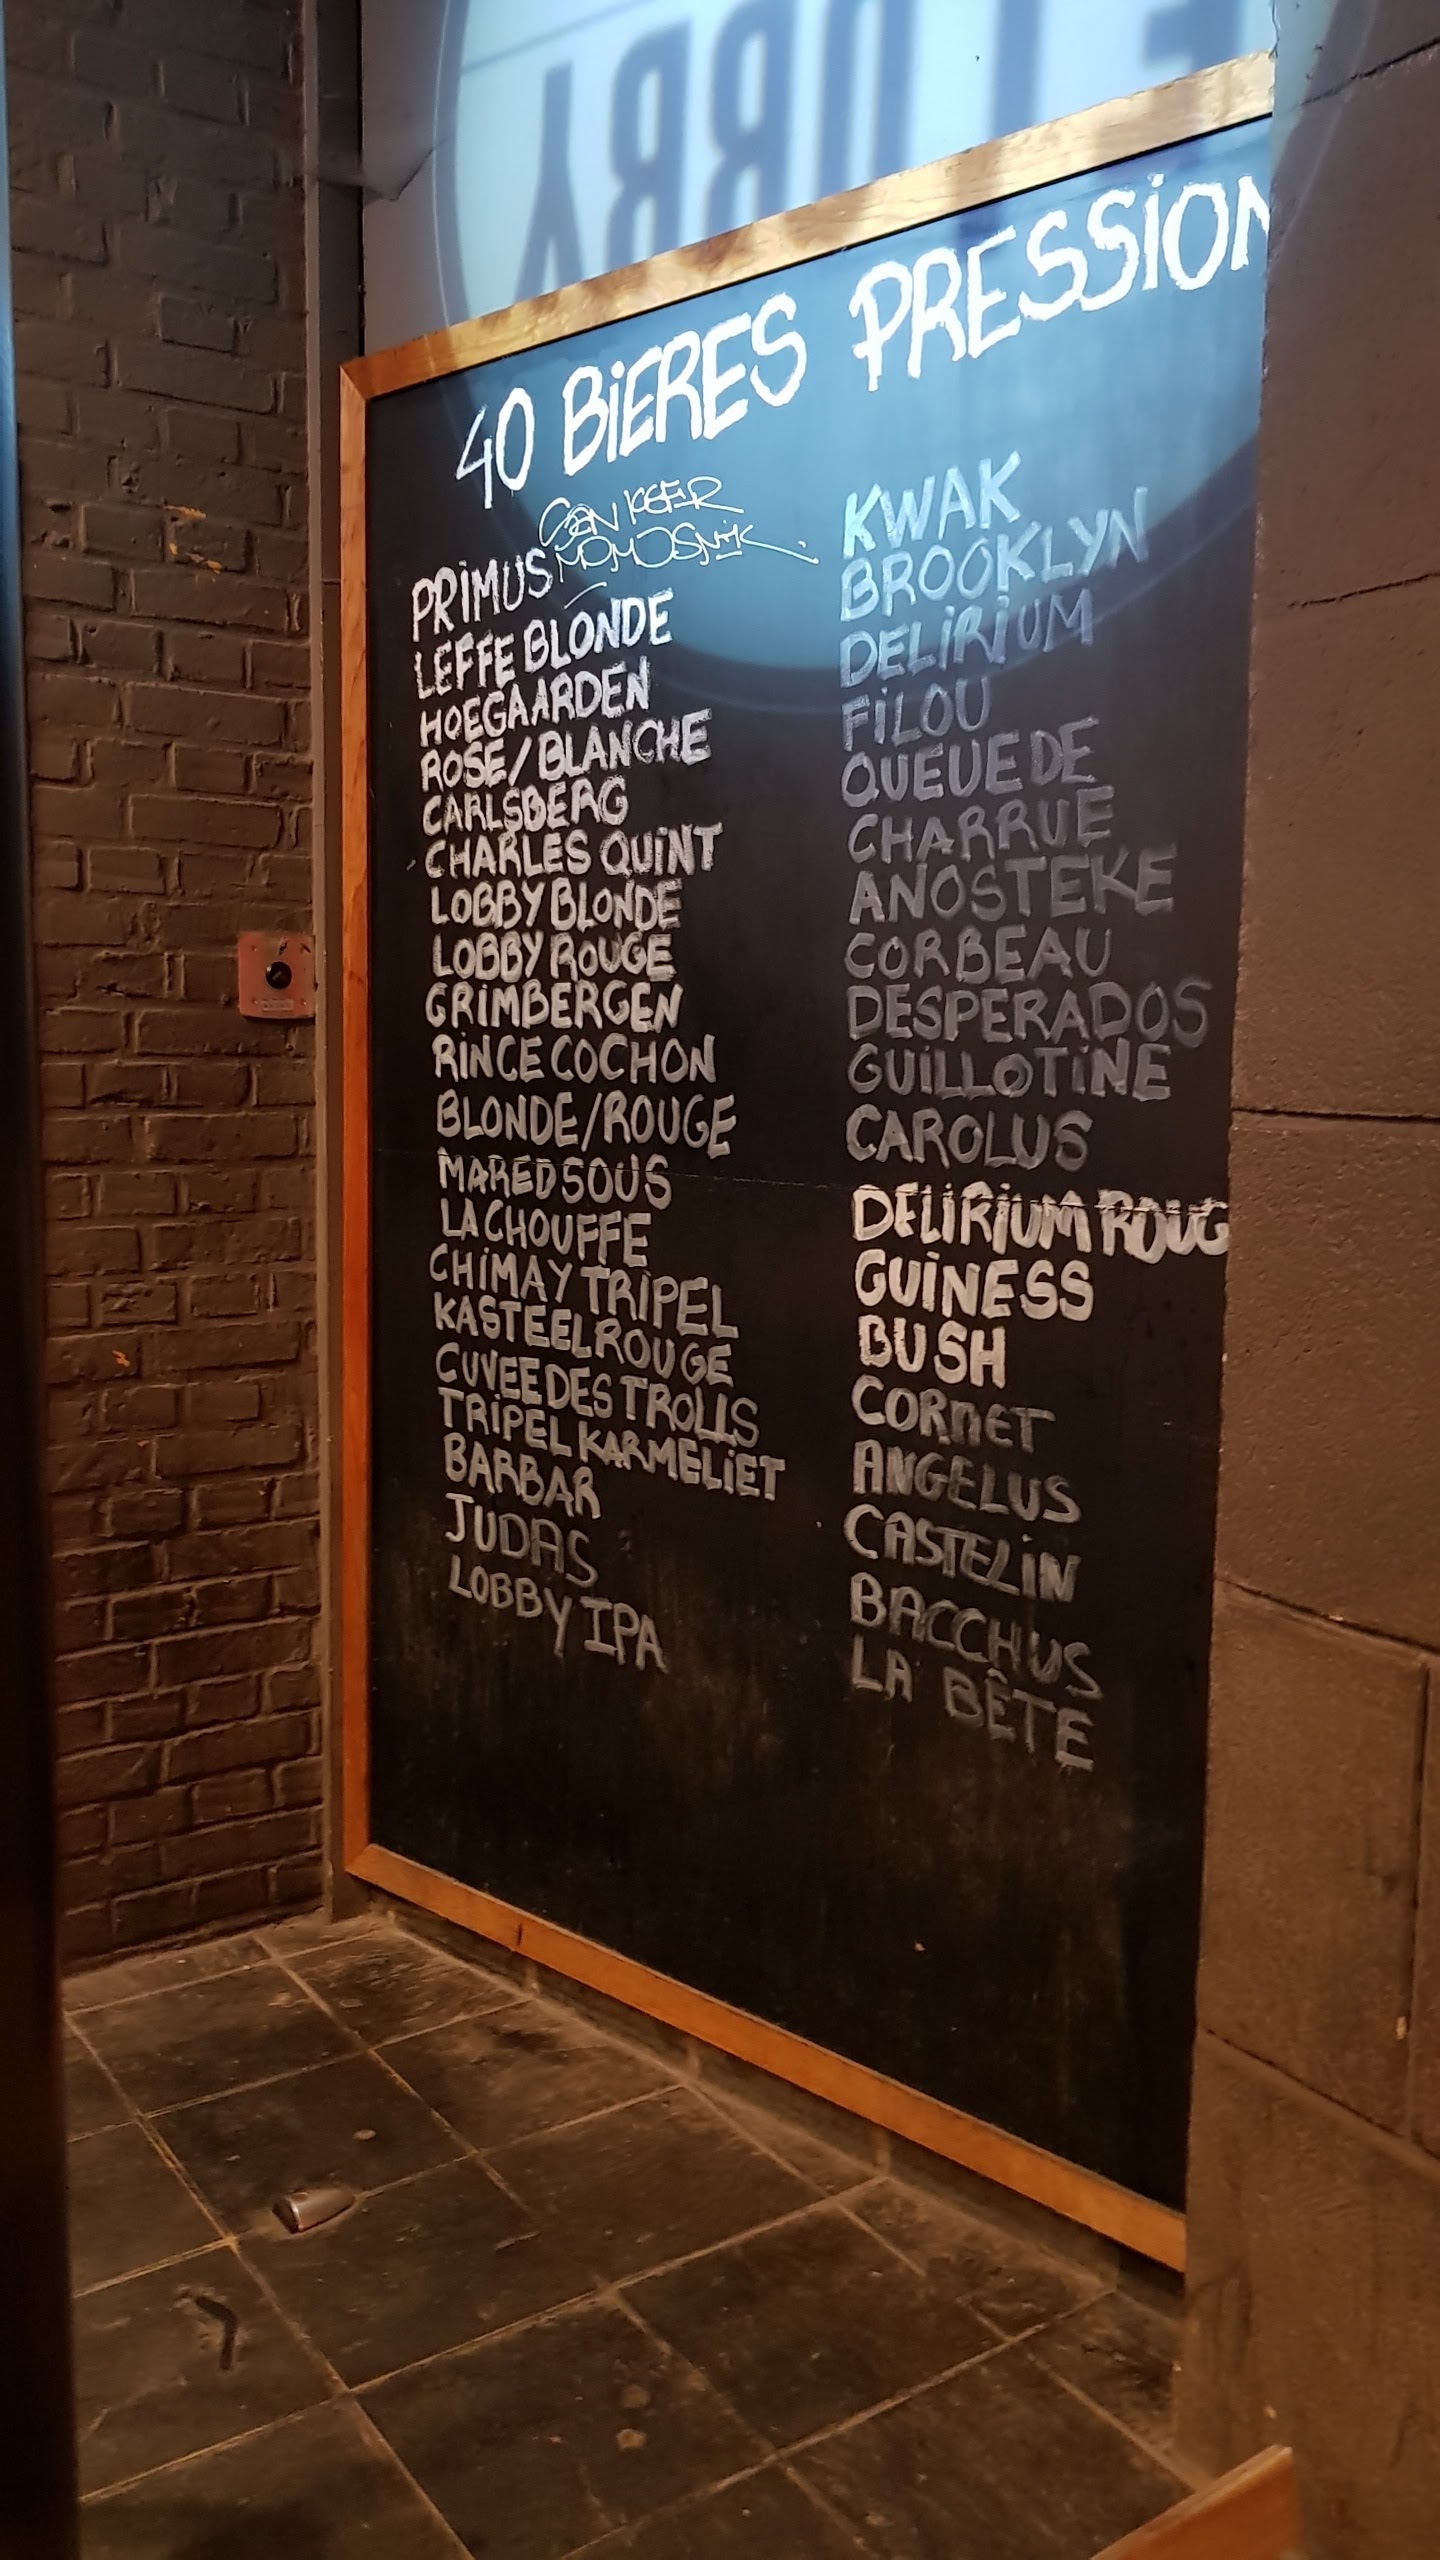 LOBBY
40 BiERES PRESSION
PRiMUS
LEFFE BLONDE
HOEGAARDEN
ROSE/BLANCHE
CARLSBERG
CHARLES QUiNT
LOBBY BLONDE
LOBBY ROUGE
GRiMBERGEN
RiNCE COCHON
BLONDE/ROUGE
MAREDSOUS
LA CHOUFFE
CHiMAY TRiPEL
KASTEEL ROUGE
CUVEE DES TROLLS
TRiPEL KARMELiET
BARBAR
JUDAS
LOBBY IPA
KWAK
BROOKLYN
DELiRiUM
FiLOU
QUEUE DE
CHARRUE
ANOSTEKE
CORBEAU
DESPERADOS
GUiLLOTiNE
CAROLUS
DELiRiUM ROUG
GUiNESS
BUSH
CORNET
ANGELUS
CASTELiN
BACCHUS
LA BÊTE